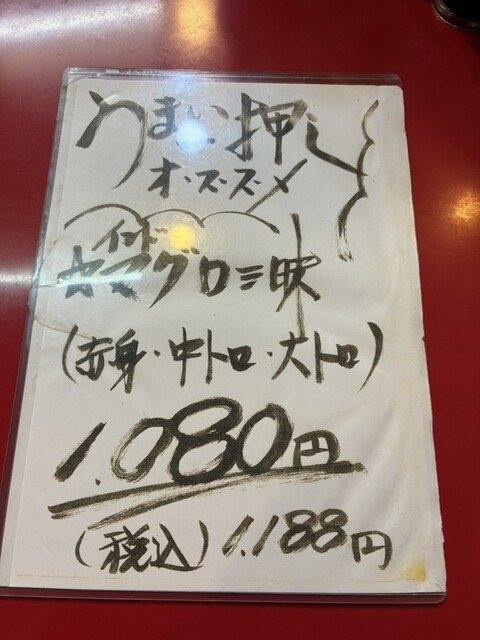 うまい押し
オススメ
インド
☆マグロ三昧
(赤身・中トロ・大トロ)
1.080円
(税込)1.188円